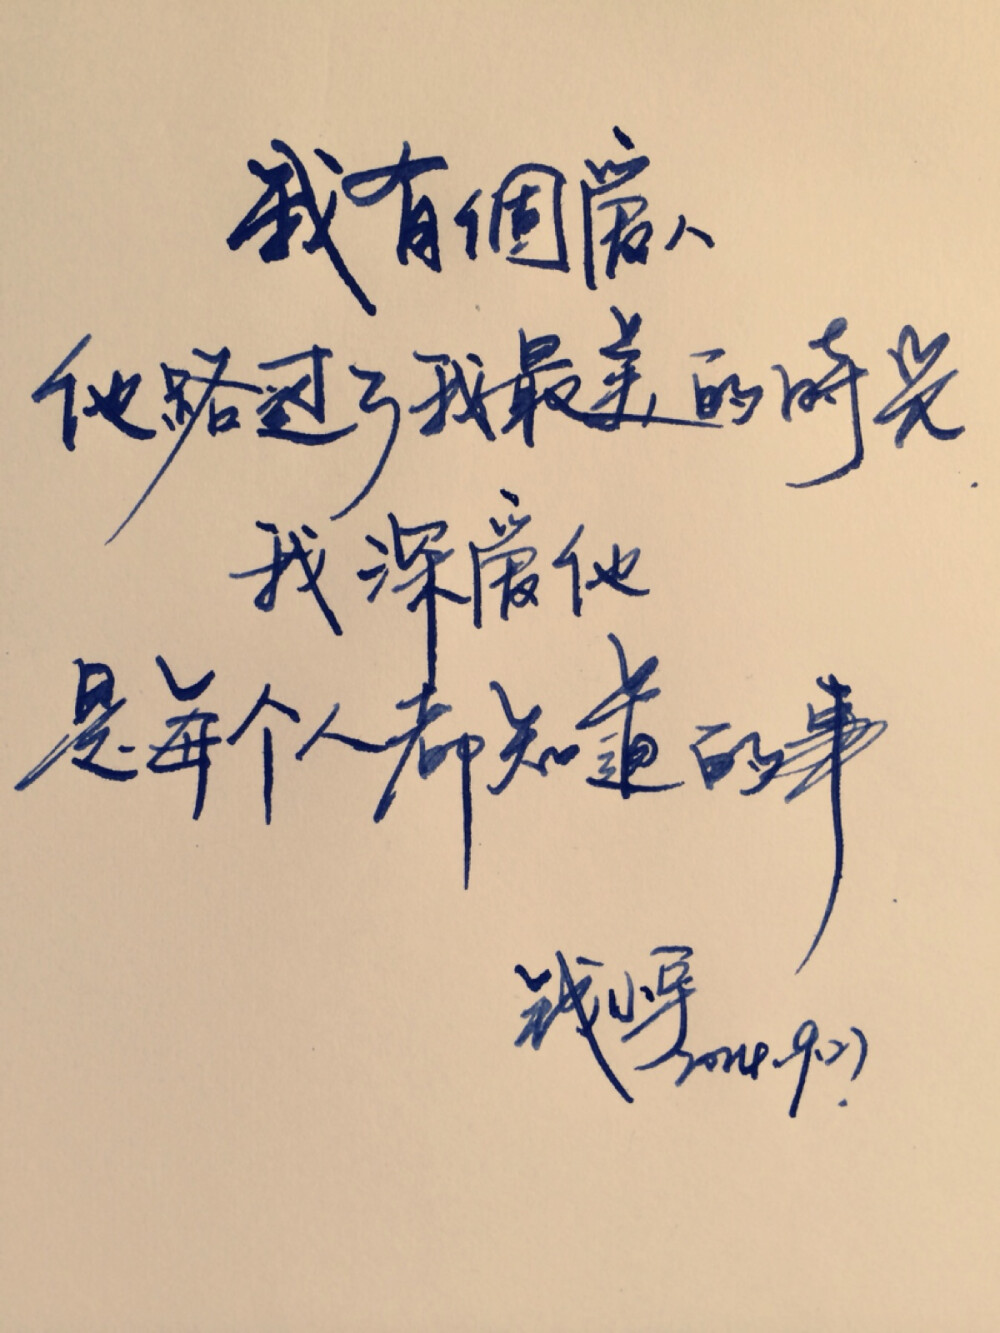 我有個爱人
他路过了我最美的時光
我深爱他
是每个人都知道的事
钱小军 2014.9.27.